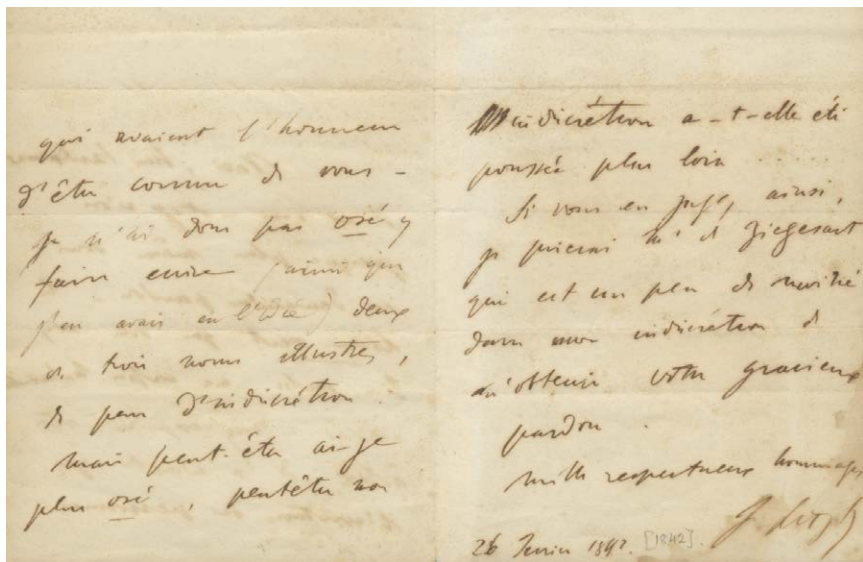 qui avaient l'honneur
d'être connu de vous -
je n'ai donc pas osé y
faire écrire (ainsi que
j'en avais eu l'idée) deux
ou trois noms illustres,
de peur d'indiscrétion.
Mais peut-être ai-je
plus osé, peutêtre mon
indiscrétion a-t-elle été
poussée plus loin ....
Si vous en jugez ainsi,
je prierai Mr de Ziegesart
qui est un peu de moitié
dans mon indiscrétion de
m'obtenir votre gracieux
pardon.
mille respectueux hommages
F. Liszt
26 Janvier 1842. [1842].